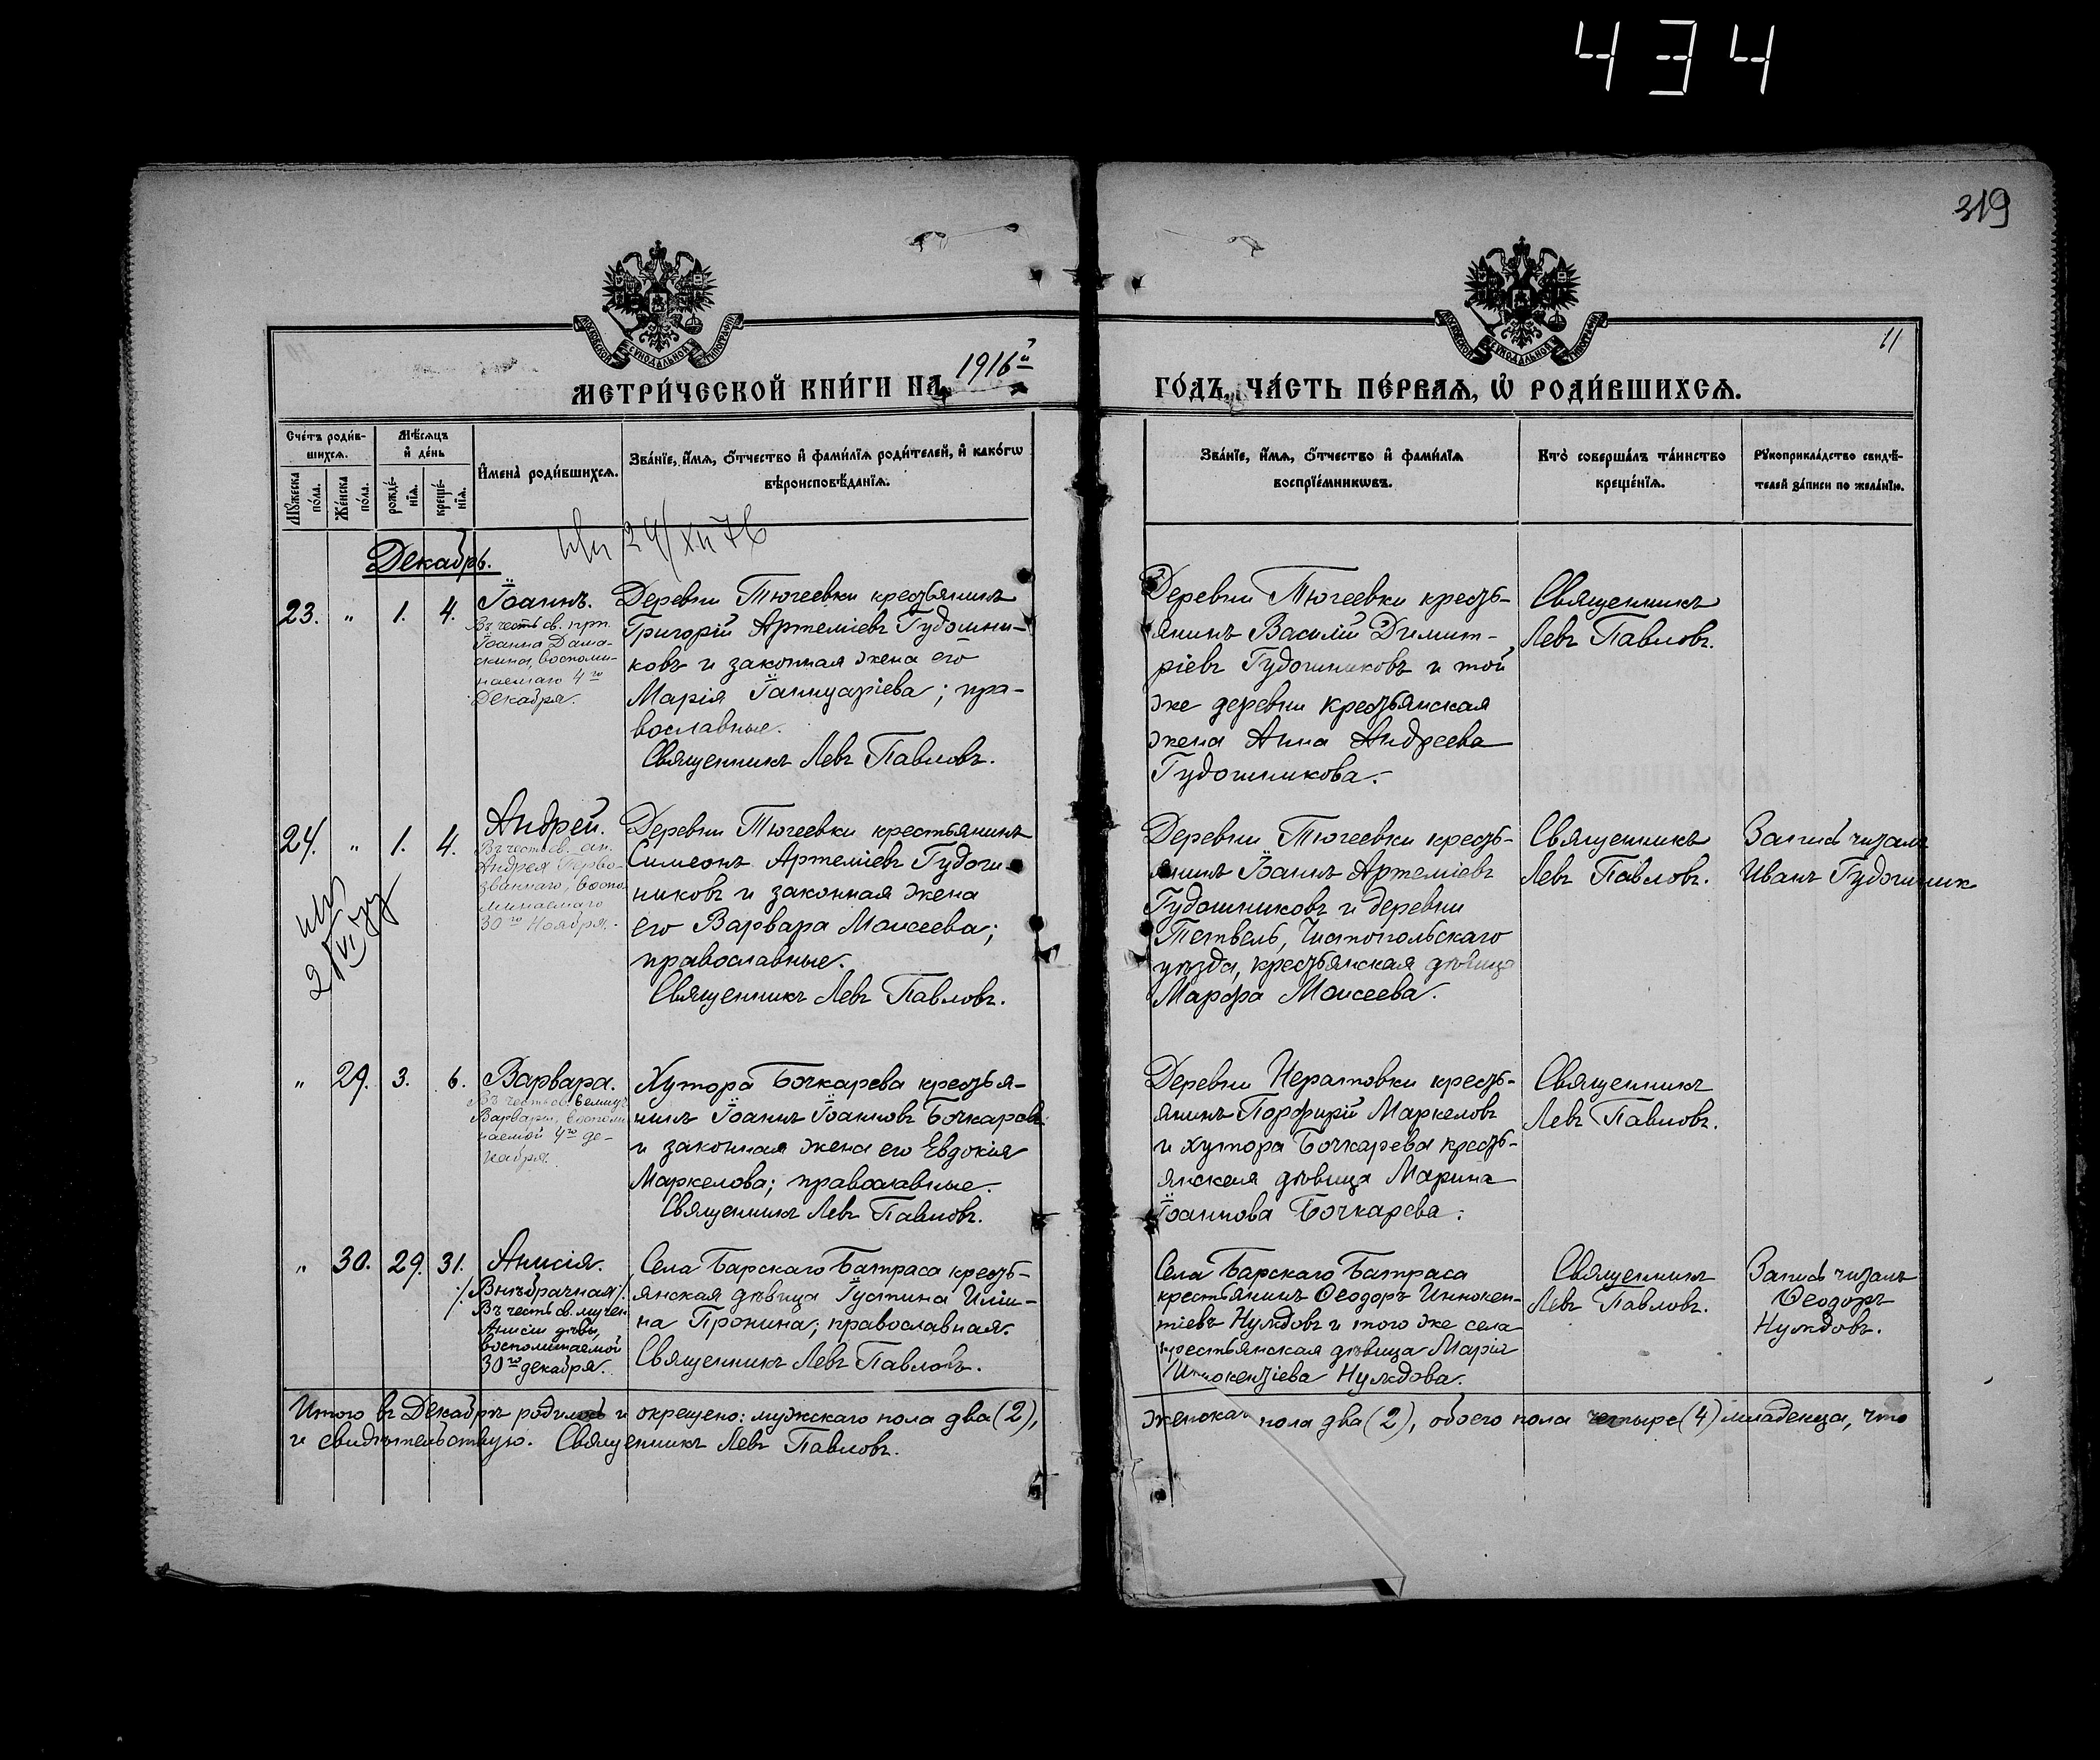 434
319
11
МОСКОВСКОЙ СѴНОДАЛЬНОЙ ТИПОГРАФІИ
МОСКОВСКОЙ СѴНОДАЛЬНОЙ ТИПОГРАФІИ
МЕТРИ́ЧЕСКОЙ КНИ́ГИ НА 1916й
ГО́ДЪ, ЧА́СТЬ ПЕ́РВАѦ, Ѡ РОДИ́ВШИХСѦ.
Сче́тъ роди́в-
шихсѧ.
Мѣ́сѧцъ
и҆ де́нь
Мꙋ́жеска
по́ла.
Же́нска
по́ла.
рожде́-
нїѧ.
креще́-
нїѧ.
И҆мена̀ роди́вшихсѧ.
Зва́нїе, и҆́мѧ, ѻ҆́тчество и҆ фами́лїѧ роди́телей, и҆ како́гѡ
вѣроисповѣ́данїѧ.
Зва́нїе, и҆́мѧ, ѻ҆́тчество и҆ фами́лїѧ
воспрїе́мникѡвъ.
Кто̀ соверша́лъ та́инство
креще́нїѧ.
Рꙋкоприкла́дство свидѣ́-
телей за́писи по жела́нїю.
Декабрь.
24/XII 76
23. " 1. 4.
Іоаннъ.
Въ честь св. прп.
Іоанна Дама-
скина, воспоми-
наемаго 4го
Декабря.
Деревни Тюгеевки крестьянинъ
Григорій Артеміевъ Гудошни-
ковъ и законная жена его
Марія Іаннуаріева; пра-
вославные.
Священникъ Левъ Павловъ.
Деревни Тюгеевки кресть-
янинъ Василій Димит-
ріевъ Гудошниковъ и той
же деревни крестьянская
жена Анна Андреева
Гудошникова.
Священникъ
Левъ Павловъ.
24. " 1. 4.
Андрей.
Въ честь св. ап.
Андрея Перво-
званнаго, воспо-
минаемаго
30го Ноября.
Деревни Тюгеевки крестьянинъ
Симеонъ Артеміевъ Гудош-
никовъ и законная жена
его Варвара Моисеева;
православные.
Священникъ Левъ Павловъ.
Деревни Тюгеевки кресть-
янинъ Іоаннъ Артеміевъ
Гудошниковъ и деревни
Тетвель, Чистопольскаго
уѣзда, крестьянская дѣвица
Марфа Моисеева.
Священникъ
Левъ Павловъ.
Запись читалъ
Иванъ Гудошник
" 29. 3. 6.
Варвара.
Въ честь св. великмуч.
Варвары, воспоми
наемой 4го де-
кабря.
Хутора Бочкарева крестья-
нинъ Іоаннъ Іоанновъ Бочкаревъ
и законная жена его Евдокія
Маркелова; православные.
Священникъ Левъ Павловъ.
Деревни Нератовки кресть-
янинъ Порфирій Маркеловъ
и хутора Бочкарева кресть-
янская дѣвица Марина
Іоаннова Бочкарева.
Священникъ
Левъ Павловъ.
" 30. 29. 31.
Анисія.
Внѣбрачная
Въ честь св. мучен.
Анисіи дѣвы,
воспоминаемой
30го декабря.
Села Барскаго Батраса кресть-
янская дѣвица Іустина Иліи-
на Пронина; православная.
Священникъ Левъ Павловъ.
Села Барскаго Батраса
крестьянинъ Ѳеодоръ Иннокен-
тіевъ Нуждовъ и того же села
крестьянская дѣвица Марія
Иннокентіева Нуждова.
Священникъ
Левъ Павловъ.
Запись читалъ
Ѳеодоръ
Нуждовъ.
Итого въ Декабрѣ родилось и окрещено: мужскаго пола два (2),
женскаго пола два (2), обоего пола четыре (4) младенца, что
и свидѣтельствую. Священникъ Левъ Павловъ.